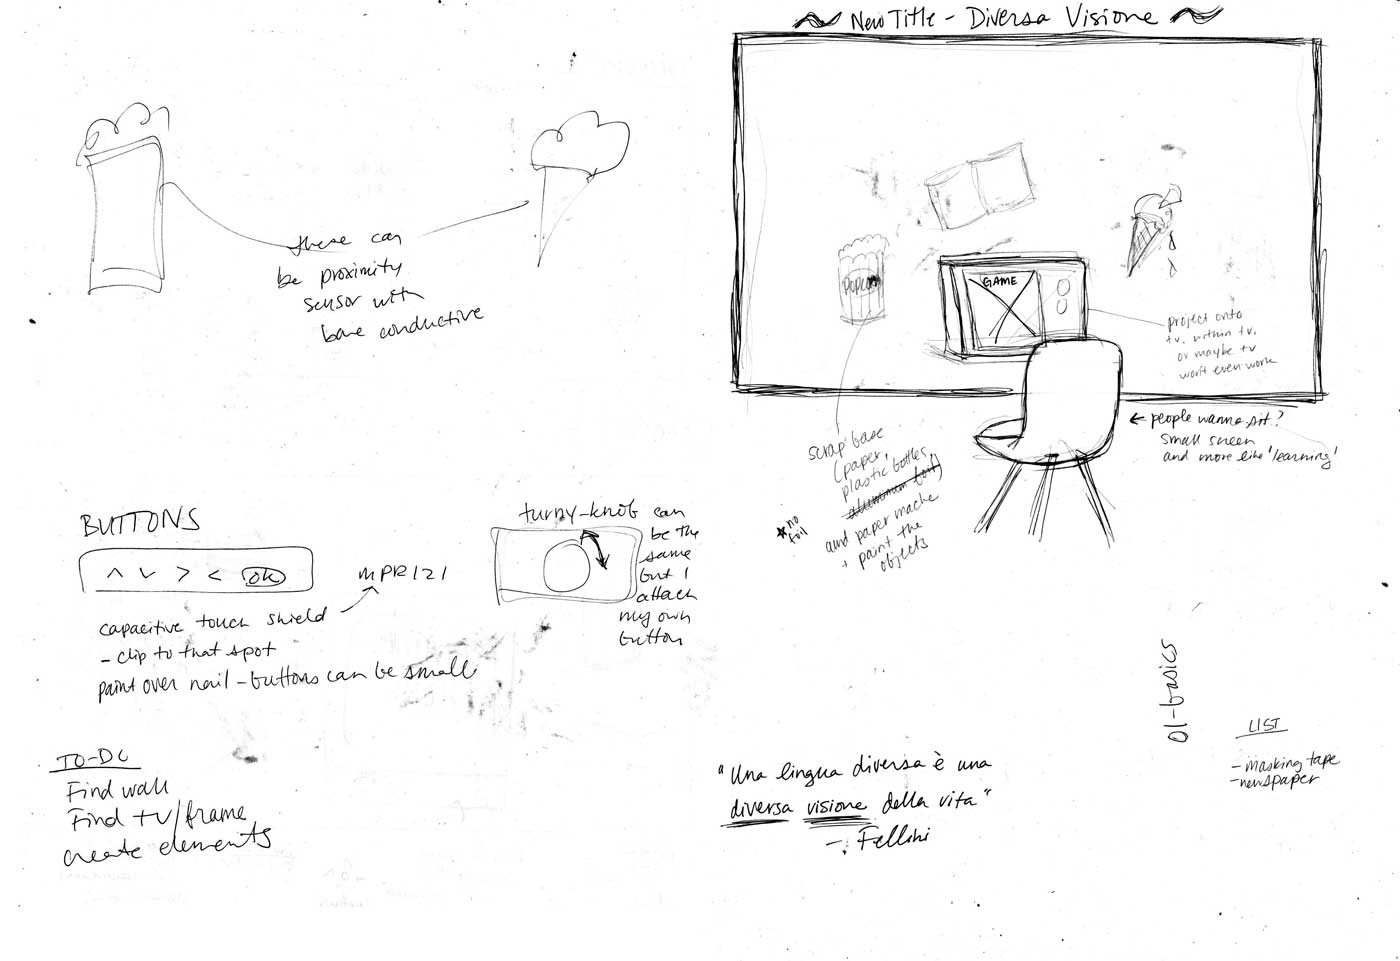 these can
be proximity
sensor with
bare conductive
BUTTONS
^ v > < ok
MPR121
capacitive touch shield
- clip to that spot
paint over nail - buttons can be small
turny-knob can
be the
same
but I
attach
my own
button
TO-DO
Find wall
Find tv/frame
create elements
New Title - Diversa Visione
Popcorn
GAME
project onto
tv, within tv,
or maybe tv
won't even work
← people wanna sit?
small screen
and more like 'learning'
scrap base
(paper,
plastic bottles,
aluminum foil)
and paper mache
+ paint the
objects
★ no
foil
01-basics
LIST
- masking tape
- newspaper
"Una lingua diversa è una
diversa visione della vita"
- Fellini